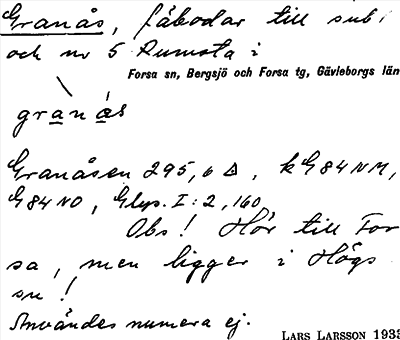 Granås, fäbodar till sub:
och nr 5 Rumsta i
Forsa sn, Bergsjö och Forsa tg, Gävleborgs län
granás
Granåsen 295,6 Δ, k G84NM,
G84NO, Glys. I:2, 160
Obs! Hör till For
sa, men ligger i Högs
sn!
Användes numera ej.
LARS LARSSON 1933